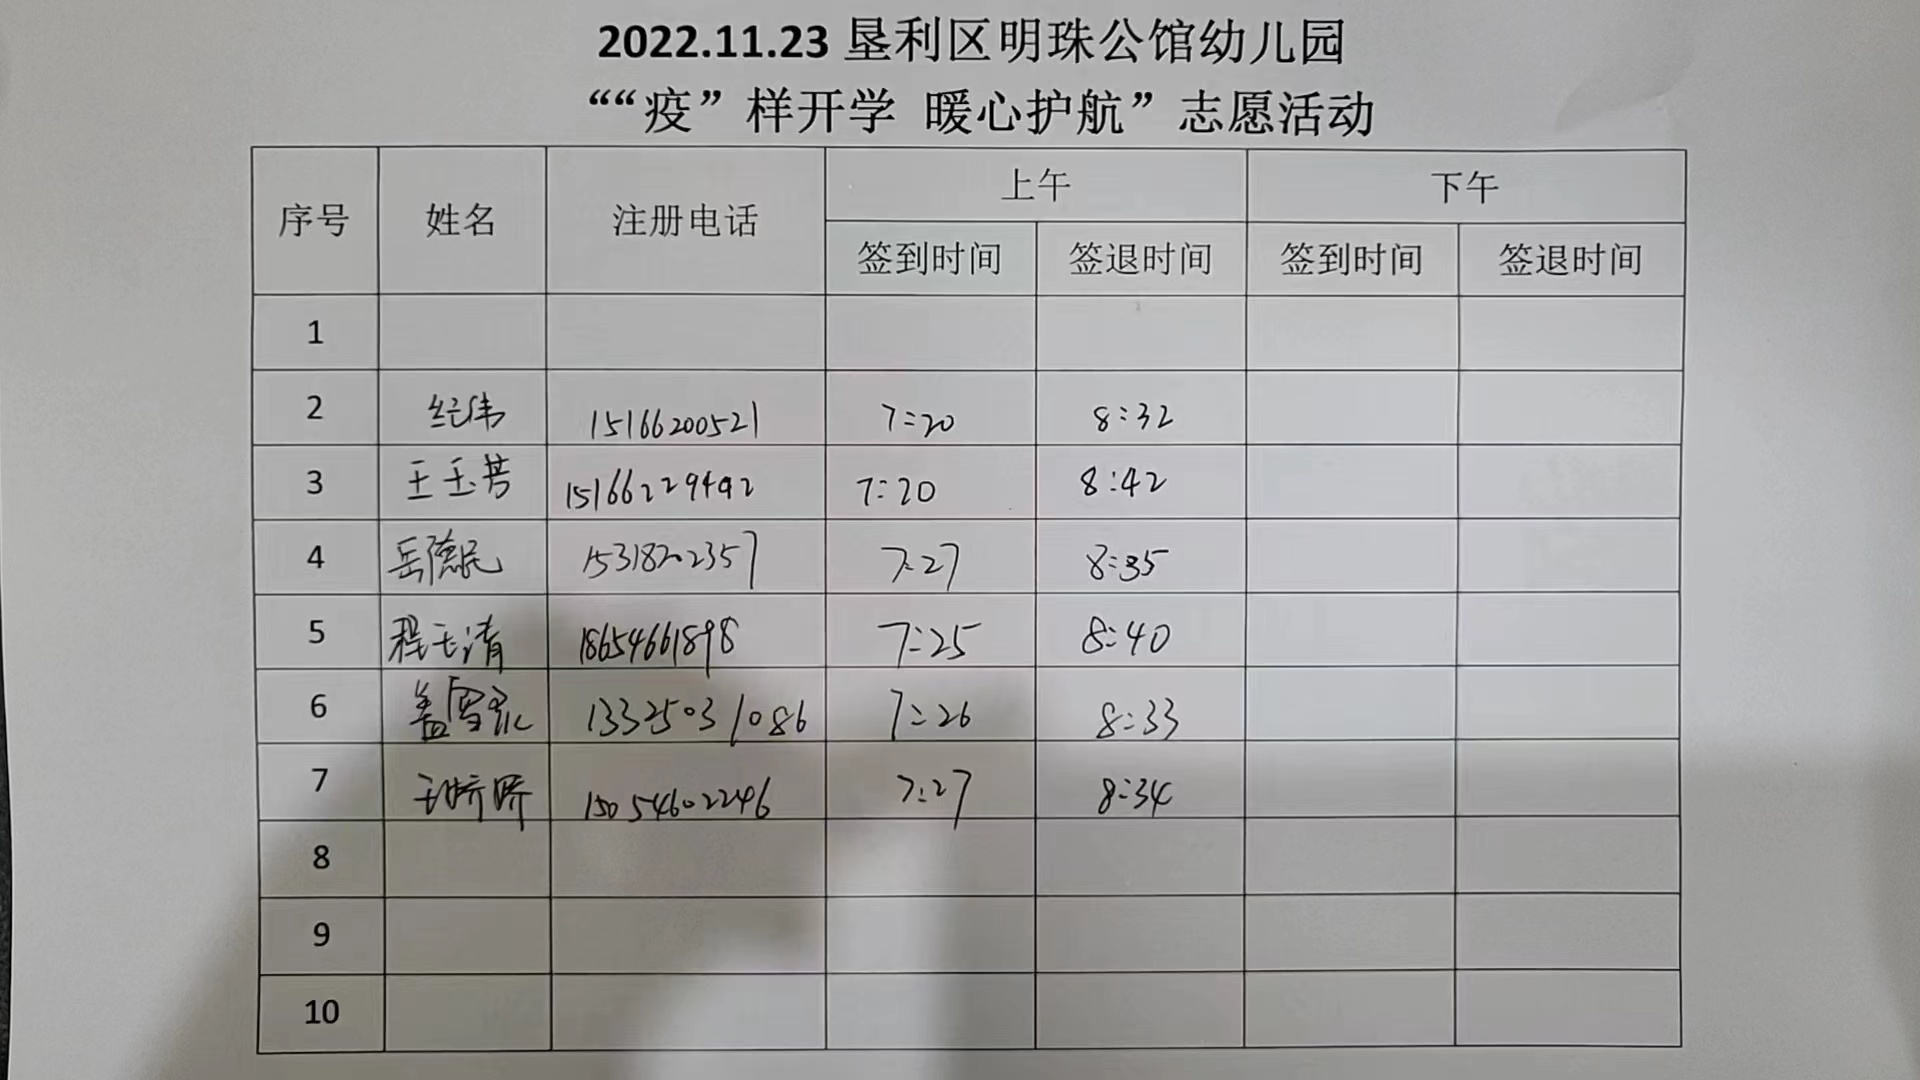 2022.11.23 垦利区明珠公馆幼儿园
““疫”样开学 暖心护航”志愿活动
序号 姓名 注册电话 上午 下午
签到时间 签退时间 签到时间 签退时间
1
2 纪伟 15166200521 7:20 8:32
3 王玉芳 15166229492 7:20 8:42
4 岳德民 15318202357 7:27 8:35
5 程玉清 18654661898 7:25 8:40
6 盖雪 13325031086 7:26 8:33
7 王娇娇 15054602246 7:27 8:34
8
9
10